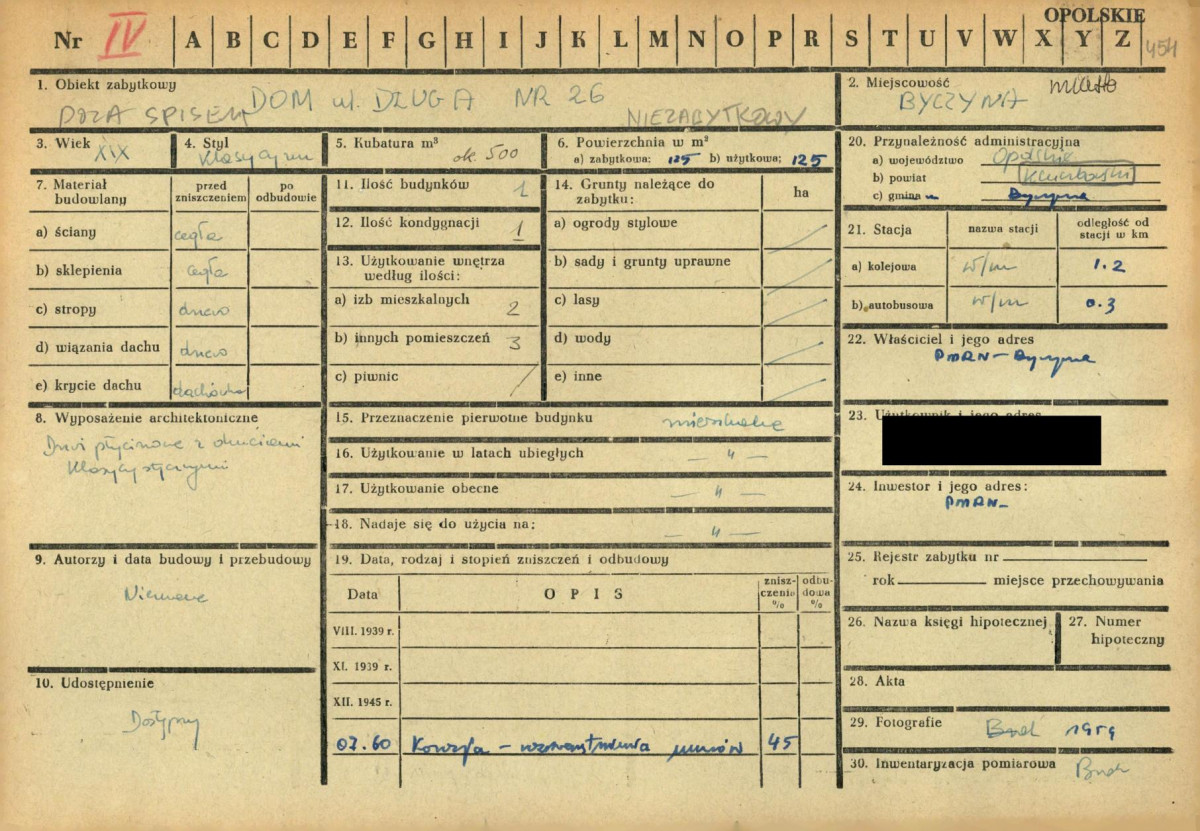 OPOLSKIE
Nr IV A B C D E F G H I J K L M N O P R S T U V W X Y Z 454
1. Obiekt zabytkowy
DOM ul. DŁUGA NR 26
POZA SPISEM NIEZABYTKOWY
2. Miejscowość miasto
BYCZYNA
3. Wiek XIX
4. Styl Klasycyzm
5. Kubatura m³ ok. 500
6. Powierzchnia w m²
a) zabytkowa: 125 b) użytkowa: 125
7. Materiał budowlany
przed zniszczeniem
po odbudowie
a) ściany cegła
b) sklepienia cegła
c) stropy drewo
d) wiązania dachu drewo
e) krycie dachu dachówka
8. Wyposażenie architektoniczne
Drzwi płycinowe z okuciami
klasycystycznymi
9. Autorzy i data budowy i przebudowy
Nieznane
10. Udostępnienie
Dostępny
11. Ilość budynków 1
12. Ilość kondygnacji 1
13. Użytkowanie wnętrza
według ilości:
a) izb mieszkalnych 2
b) innych pomieszczeń 3
c) piwnic /
14. Grunty należące do
zabytku:
ha
a) ogrody stylowe
b) sady i grunty uprawne
c) lasy
d) wody
e) inne
15. Przeznaczenie pierwotne budynku mieszkalne
16. Użytkowanie w latach ubiegłych — " —
17. Użytkowanie obecne — " —
18. Nadaje się do użycia na: — " —
19. Data, rodzaj i stopień zniszczeń i odbudowy
Data OPIS znisz-czenia % odbu-dowa %
VIII. 1939 r.
XI. 1939 r.
XII. 1945 r.
07.60 Korozja – rozwarstwienia murów 45
20. Przynależność administracyjna
a) województwo Opolskie
b) powiat Kluczborski
c) gmina Byczyna
21. Stacja
nazwa stacji
odległość od stacji w km
a) kolejowa w/m 1.2
b) autobusowa w/m 0.3
22. Właściciel i jego adres
PMRN – Byczyna
23. Użytkownik i jego adres
24. Inwestor i jego adres:
PMRN –
25. Rejestr zabytku nr
rok miejsce przechowywania
26. Nazwa księgi hipotecznej
27. Numer hipoteczny
28. Akta
29. Fotografie Brak 1959
30. Inwentaryzacja pomiarowa Brak